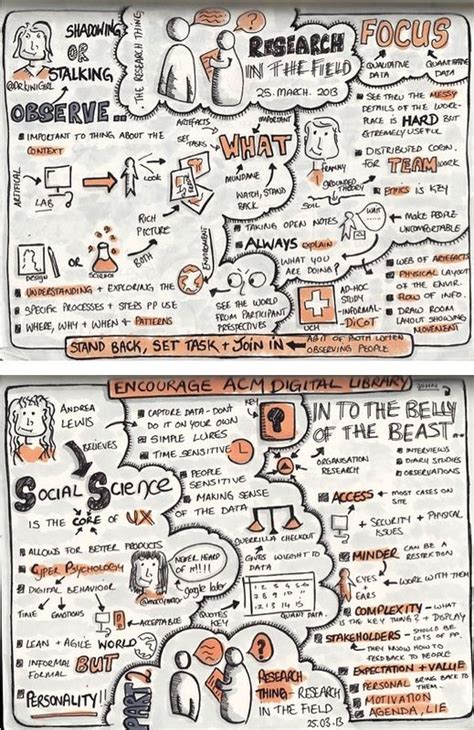 SHADOWING
OR
STALKING
OBSERVE..
IMPORTANT TO THING ABOUT THE
CONTEXT
ARTIFICIAL
LAB
LOOK
DESIGN
OR
SCIENCE
BOTH
RICH
PICTURE
UNDERSTANDING + EXPLORING THE
SPECIFIC PROCESSES + STEPS PP USE
WHERE, WHY + WHEN + PATTERNS
ENVIRONMENT
THE RESEARCH THING
RESEARCH
IN THE FIELD
25. MARCH. 2013
ARTEFACTS
SET
TASKS
IMPORTANT
WHAT
MUNDANE
WATCH, STAND
BACK
TAKING OPEN NOTES
ALWAYS explain
WHAT YOU
ARE DOING?
SEE THE WORLD
FROM PARTICIPANT
PERSPECTIVES
FOCUS
QUALITATIVE
DATA
QUANTITATIVE
DATA
SEE THRU THE MESSY
DETAILS OF THE WORK-
PLACE IS HARD BUT
EXTREMELY USEFUL
DISTRIBUTED COGN.
FOR TEAM WORK
ETHICS IS KEY
GROUNDED
THEORY
WAIT
MAKE PEOPLE
UNCOMFORTABLE
AD-HOC
STUDY
-INFORMAL-
DiCoT
UCH
WEB OF ARTEFACTS
PHYSICAL LAYOUT
OF THE ENVIR.
FLOW OF INFO
DRAW ROOM
LAYOUT SHOWING
MOVEMENT
STAND BACK, SET TASK + JOIN IN
A BIT OF BOTH WHEN
OBSERVING PEOPLE
ENCOURAGE ACM DIGITAL LIBRARY
JOHN
ANDREA
LEWIS
BELIEVES
SOCIAL SCIENCE
IS THE CORE OF UX
ALLOWS FOR BETTER PRODUCTS
CYBER PSYCHOLOGY
DIGITAL BEHAVIOUR
TIME
EMOTIONS
ACCEPTABLE
LEAN + AGILE WORLD
INFORMAL
FORMAL
BUT
PERSONALITY!!
CAPTURE DATA - DONT
DO IT ON YOUR OWN
SIMPLE LURES
TIME SENSITIVE
PEOPLE
SENSITIVE
MAKING SENSE
OF THE DATA
KEY
NEVER HEARD
OF IT!!!!
google later
GUERILLA CHECKOUT
GIVES WEIGHT TO
DATA
QUOTES
KEY
QUANT DATA.
PART 2
RESEARCH
THING - RESEARCH
IN THE FIELD
25.03.13
IN TO THE BELLY
OF THE BEAST..
ORGANISATION
RESEARCH
INTERVIEWS
DIARY STUDIES
OBSERVATIONS
ACCESS
MOST CASES ON
SITE
+ SECURITY + PHYSICAL
ISSUES
MINDER
CAN BE A
RESTRICTION
EYES
EARS
WORK WITH THEM
COMPLEXITY - WHAT
IS THE KEY THING? - DISPLAY
STAKEHOLDERS - SHOULD BE
LOTS OF PP.
THEY KNOW HOW TO
FEEDBACK TO PEOPLE
EXPECTATION + VALUE
PERSONAL BRING BACK TO
THEM..
MOTIVATION
AGENDA, LIE